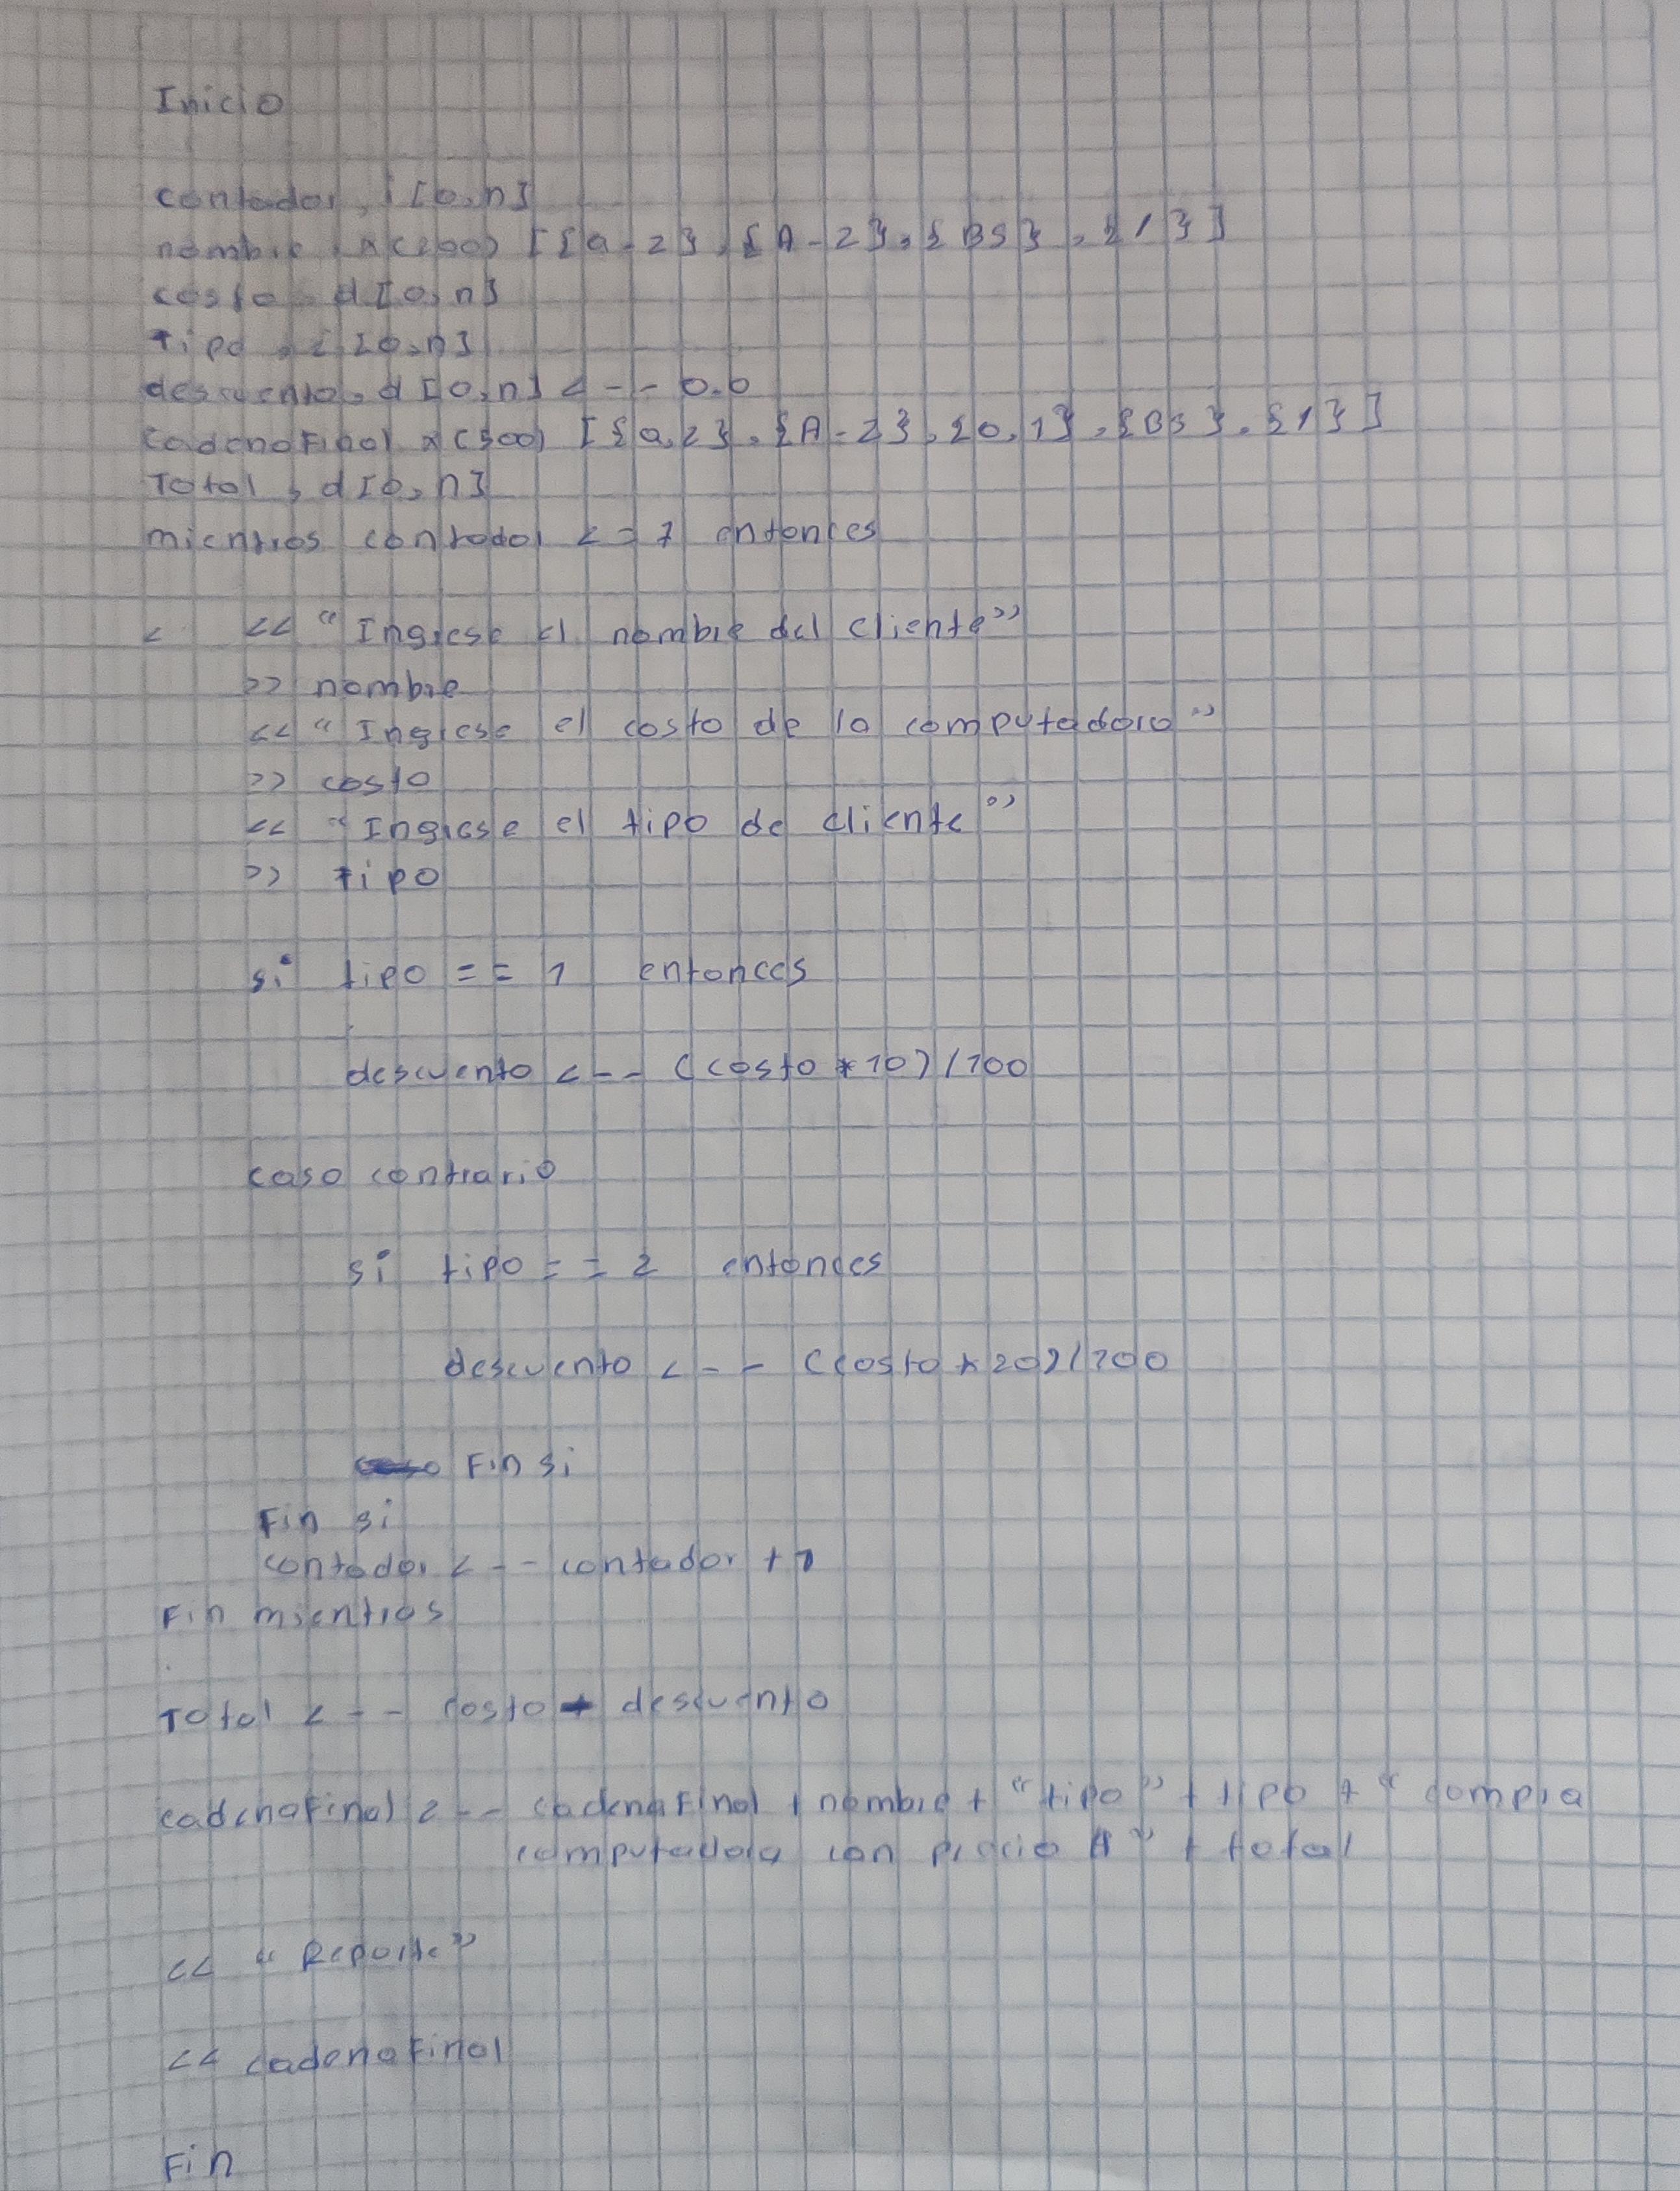 Inicio
contador, i [0,n]
nombre, x(200) [{a-z}, {A-Z}, {BS}, {1}]
costo, d[0,n]
tipo, i [0,n]
descuento, d [0,n] <-- 0.0
cadenaFinal x(500) [{a,z}, {A-Z}, {0,1}, {BS}, {1}]
Total, d[0,n]
mientras contador <= 7 entonces
< << "Ingrese el nombre del cliente"
>> nombre
<< "Ingrese el costo de la computadora"
>> costo
<< "Ingrese el tipo de cliente"
>> tipo
si tipo == 1 entonces
descuento <-- (costo *10)/100
caso contrario
si tipo == 2 entonces
descuento <-- (costo *20)/100
Fin si
Fin si
contador <-- contador +1
Fin mientras
Total <-- costo - descuento
cadenaFinal <-- cadenaFinal + nombre + "tipo" + tipo + "compra
computadora con precio A" + total
<< "Reporte"
<< cadenaFinal
Fin